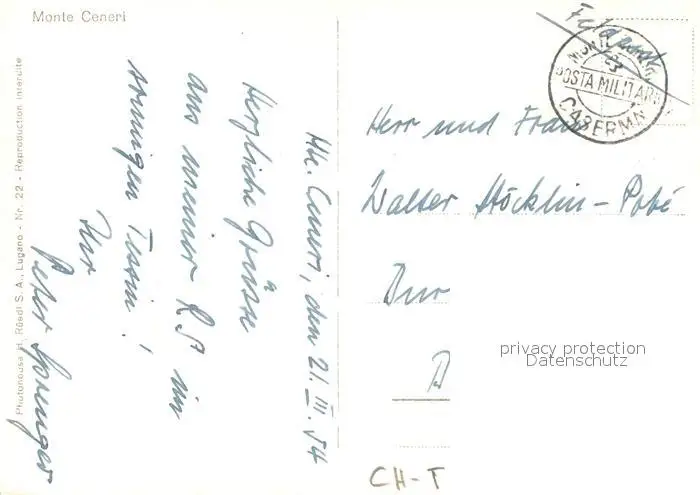 Monte Ceneri
Mte. Ceneri, den 21. III. 54
Herzliche Grüsse
aus meiner RS im
sonnigen Tessin!
Ihr
Peter Sprenger
Photohouse H. Rüedi S. A., Lugano - Nr. 22 - Reproduction interdite
Feldpost
MONTE
POSTA MILITARE
CASERMA
Herr und Frau
Walter Stöcklin-
Dur
A
privacy protection
Datenschutz
CH-T